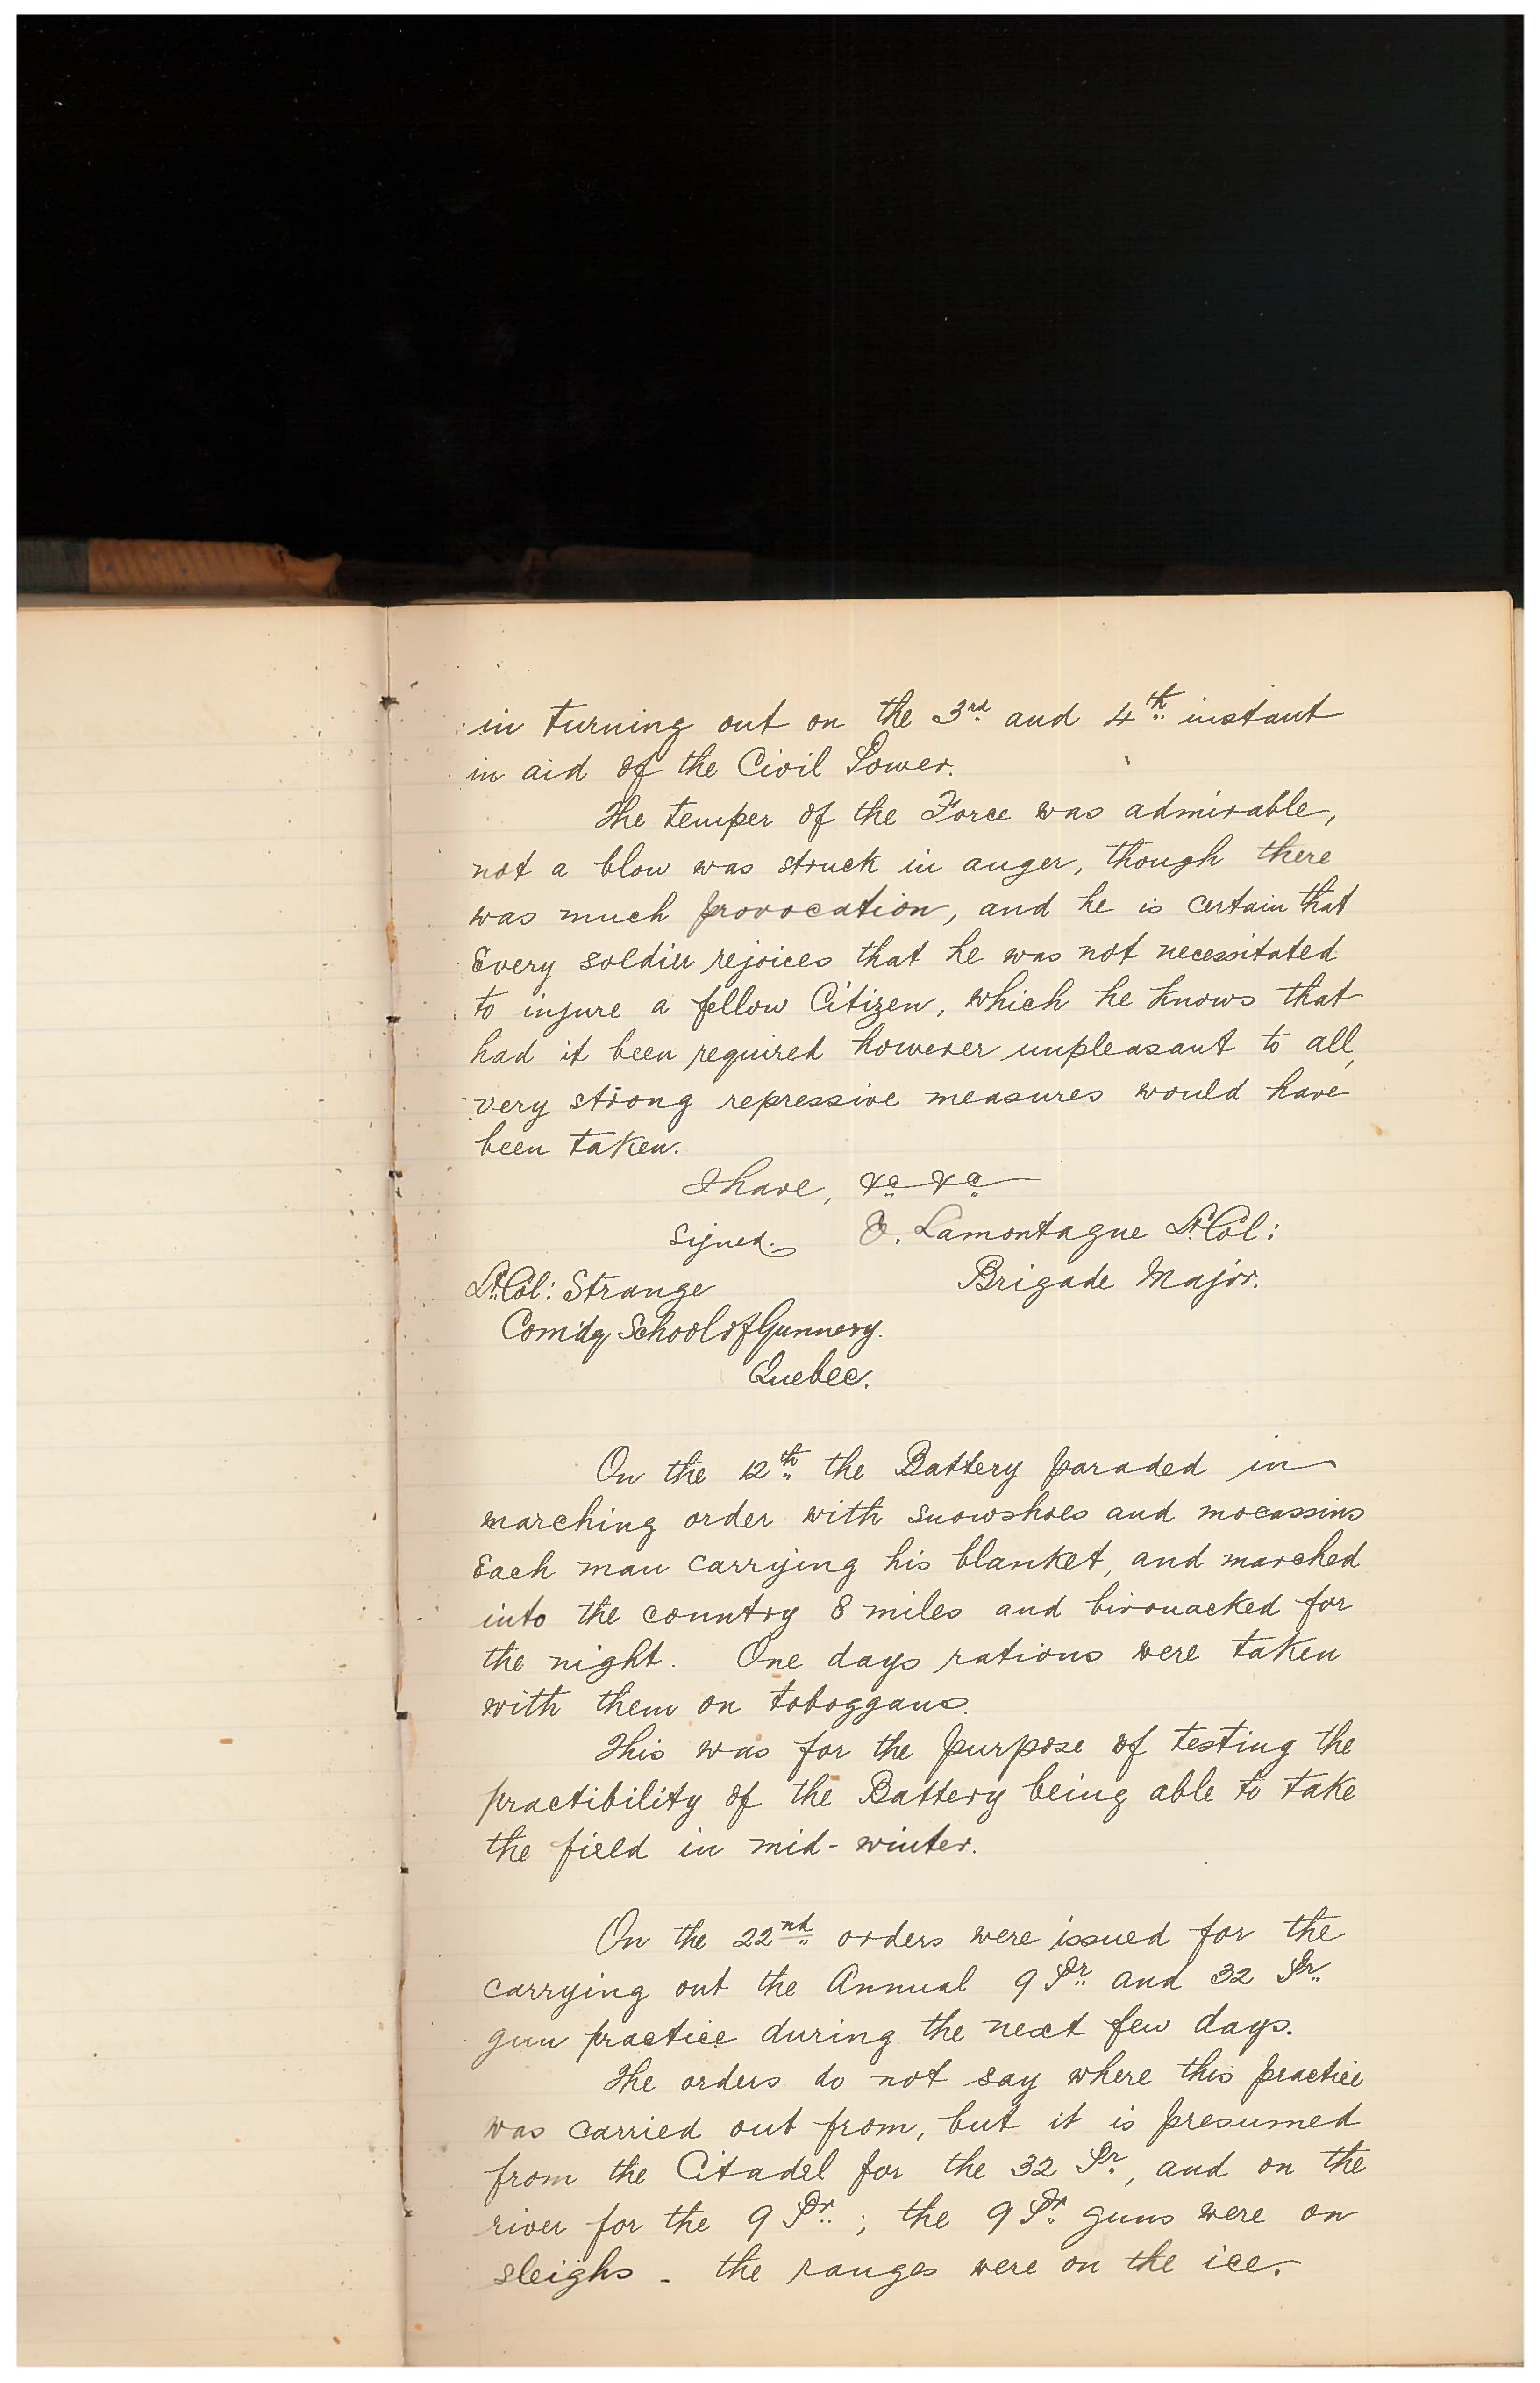 in turning out on the 3rd and 4th instant
in aid of the Civil Power.
The temper of the Force was admirable,
not a blow was struck in anger, though there
was much provocation, and he is certain that
Every soldier rejoices that he was not necessitated
to injure a fellow Citizen, which he knows that
had it been required however unpleasant to all,
very strong repressive measures would have
been taken.
I have, &c &c
Signed. O. Lamontagne Lt. Col:
Brigade Major.
Lt. Col: Strange
Com'dg School of Gunnery.
Quebec.
On the 12th the Battery paraded in
marching order with snowshoes and mocassins
Each man carrying his blanket, and marched
into the country 8 miles and bivouacked for
the night. One days rations were taken
with them on toboggans.
This was for the purpose of testing the
practibility of the Battery being able to take
the field in mid-winter.
On the 22nd orders were issued for the
carrying out the Annual 9 Pr and 32 Pr.
gun practice during the next few days.
The orders do not say where this practice
was carried out from, but it is presumed
from the Citadel for the 32 Pr., and on the
river for the 9 Pr.; the 9 Pr. guns were on
sleighs - the ranges were on the ice.